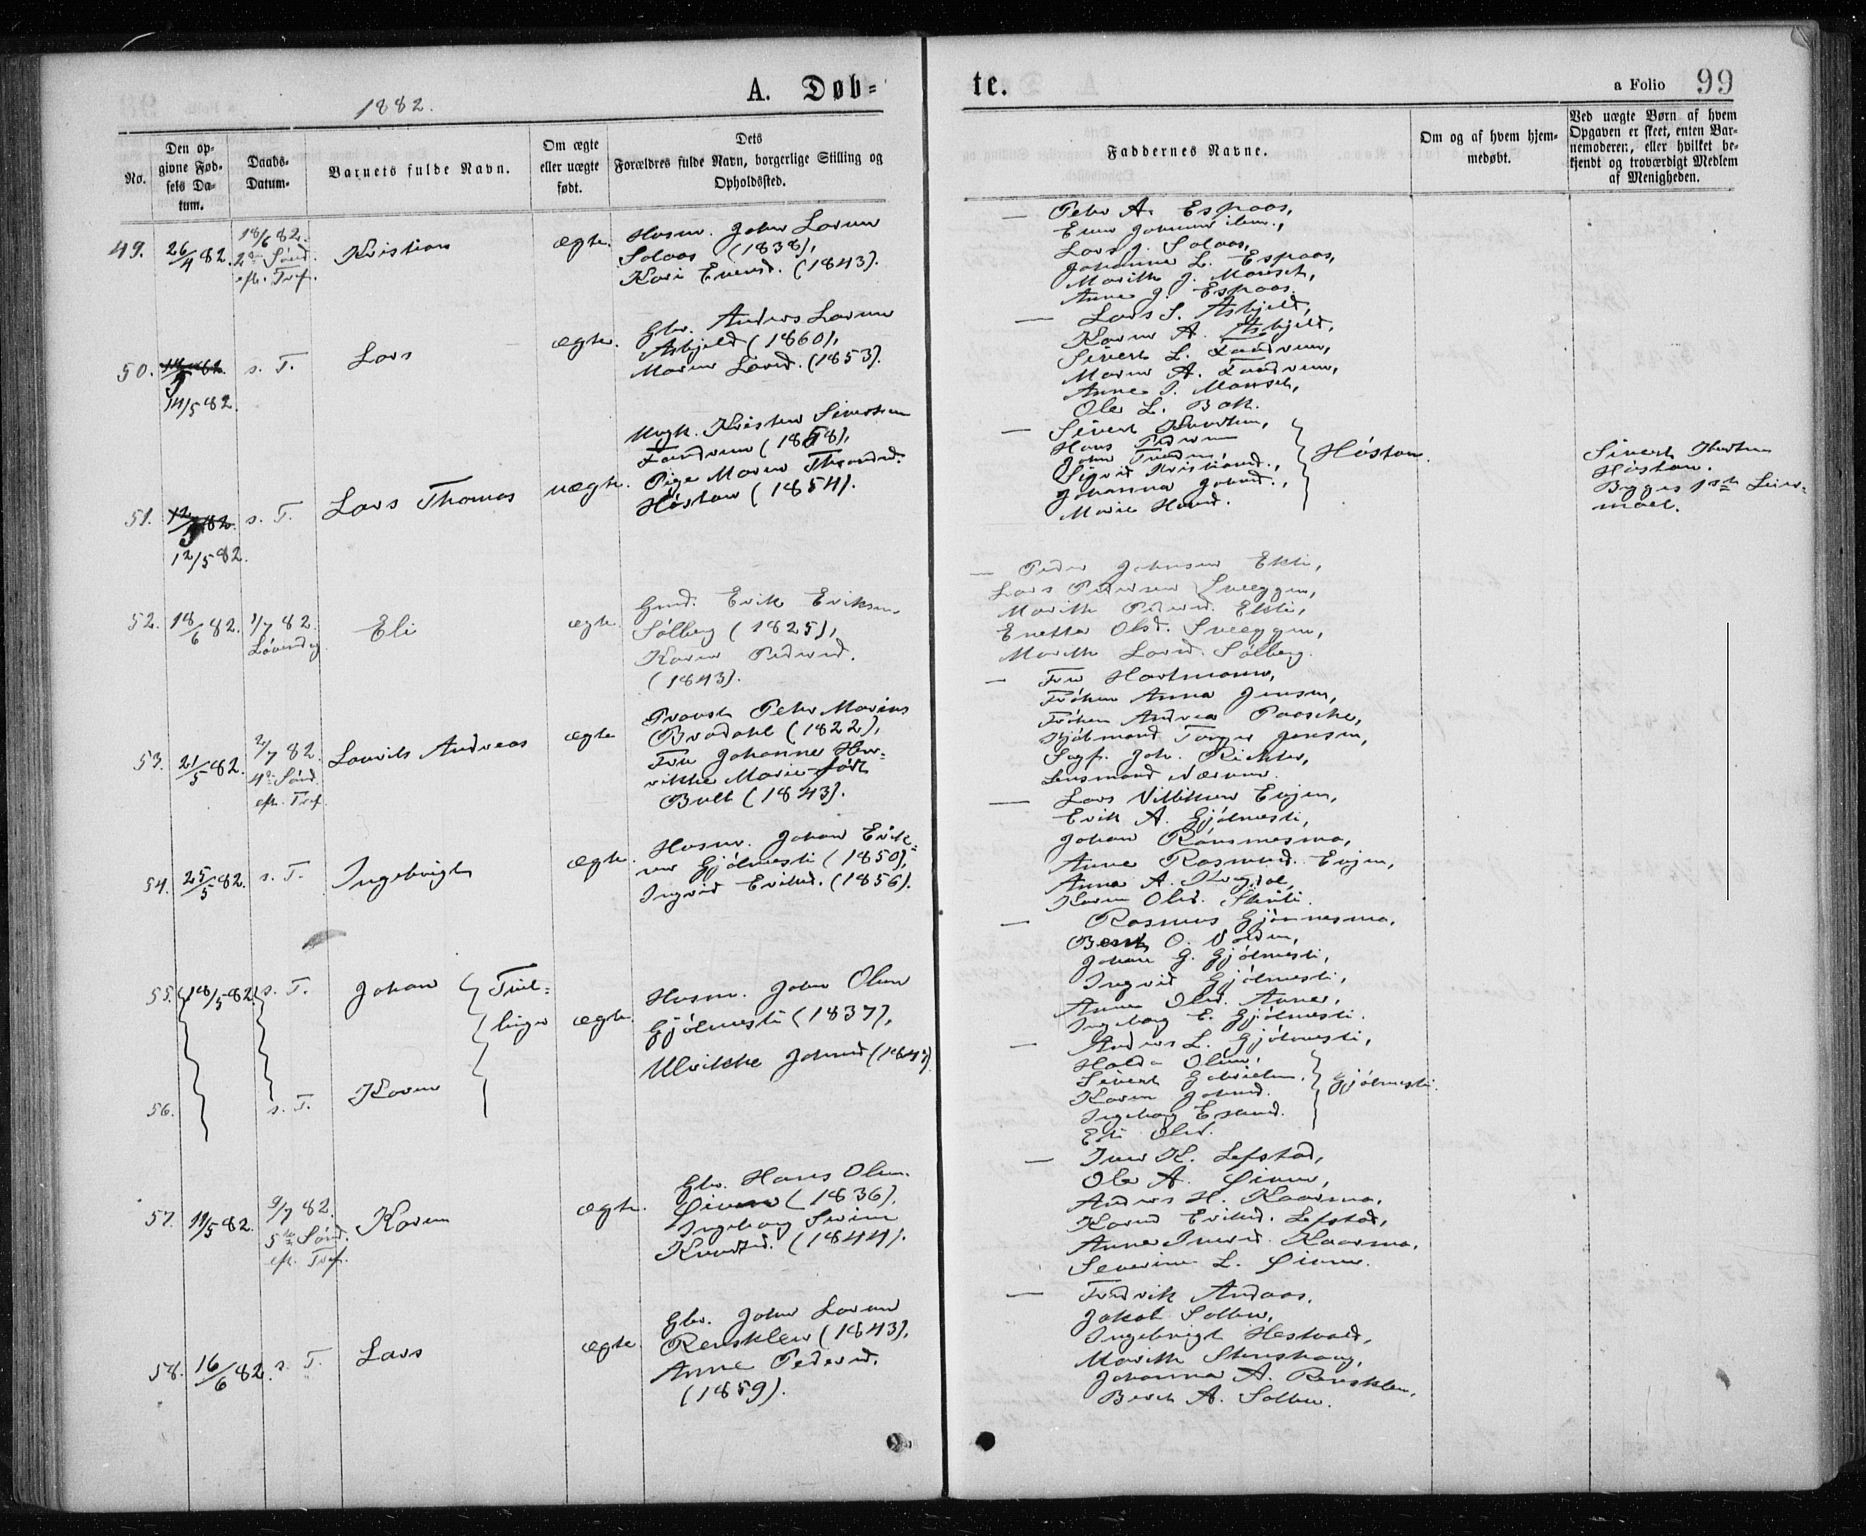 1882.
A. Døb=
te.
a Folio 99
No.
Den op-
givne Fød-
sels Da-
tum.
Daabs-
Datum.
Barnets fulde Navn.
Om ægte
eller uægte
født.
Dets
Forældres fulde Navn, borgerlige Stilling og
Opholdssted.
Faddernes Navne.
Om og af hvem hjem-
medøbt.
Ved uægte Børn af hvem
Opgaven er skeet, enten Bar-
nemoderen, eller hvilket be-
kjendt og troværdigt Medlem
af Menigheden.
49.
26/4 82.
18/6 82.
2den Sønd.
eft. Tref.
Kristian
ægte.
Husm. John Larsen
Solaas (1838),
Kari Eriksd. (1843).
— Peter A. Espaas,
Lars J. Solaas,
Johanna L. Espaas,
Marith J. Marsch,
Anne J. Espaas.
50.
14/5 82.
s. T.
Lars
ægte.
Gbr. Anders Larsen
Asbjeld (1860),
Maren Larsd. (1853).
— Lars S. Asbjeld,
Karen A. Asbjeld,
Sivert L. Landrum,
Maren A. Landrum,
Ole L. Bak.
51.
12/5 82.
s. T.
Lars Thomas
uægte.
Ungk. Kristen Sivertsen
Landrum (1858),
Pige Maren Thomasd.
Høston (1854).
— Sivert Knudsen,
Hans Pedersen
Sigrid Kristiansd.,
Johanna Johnsd.,
Marie Hansd.
Høston.
Sivert Knudsen
Høston.
Begges 1ste Leier-
maal.
52.
18/6 82.
1/7 82.
Løverdag
Eli
ægte.
Gmd. Erik Eriksen
Sølberg (1825),
Karen Pedersd.
(1843).
— Peder Johnsen Ekli,
Lars Pedersen Sveeggen,
Marith Pedersd. Ekli,
Enetta Olsd. Sveeggen,
Marith Larsd. Sølberg.
53.
21/5 82.
2/7 82.
4de Sønd.
eft. Tref.
Lauritz Andreas
ægte
Provst Peter Marius
Brodahl (1822),
Fru Johanne Hen-
rikke Marie født
Bull (1843).
— Fru Hartmann,
Frøken Anna Jensen,
Frøken Andrea Paasche,
Kjøbmand Torger Jensen,
Sagf. Joh. Richter,
Lensmand Nærum.
54.
25/5 82.
s. T.
Ingebrigt
ægte.
Husm. Johan Erik-
sen Gjølmesli (1850),
Ingrid Eriksd. (1856).
— Lars Villiksen Evjen,
Erik A. Gjølmesli,
Johan Rønnesmo,
Anne Rasmusd. Evjen,
Karen Olsd.
55.
18/5 82.
s. T.
Johan
Tvil-
linger
ægte.
Husm. John Olsen
Gjølmesli (1837),
Ulrikke Johnsd.
— Rasmus Gjønnesmo,
Berit O.
Johan G. Gjølmesli,
Ingrid Gjølmesli,
Anne Olsd.
Ingeborg E. Gjølmesli.
56.
s. T.
Karen
— Anders L. Gjølmesli,
Sivert Gabrielsen.
Karen Johnsd.
Ingeborg Eriksd.
Eli Olsd.
Gjølmesli.
57.
11/5 82.
9/7 82.
5te Sønd.
eft. Tref.
Karen
ægte.
Gbr. Hans Olsen
Øium (1836),
Ingeborg Serine
Knudsd. (1844).
— Iver K. Lefstad,
Ole A. Øium,
Anders H. Kaarmo,
Karen Eriksd. Lefstad,
Anne Iversd. Kaarmo,
Severine L. Øium.
58.
16/6 82.
s. T.
Lars
ægte.
Gbr. John Larsen
Rensklev (1843),
Anne Pedersd.
(1859).
— Fredrik Andaas,
Jakob Solbu,
Ingebrigt Hestvold,
Marith Stenshaug,
Johanna A. Rensklev,
Berit A. Solbu.